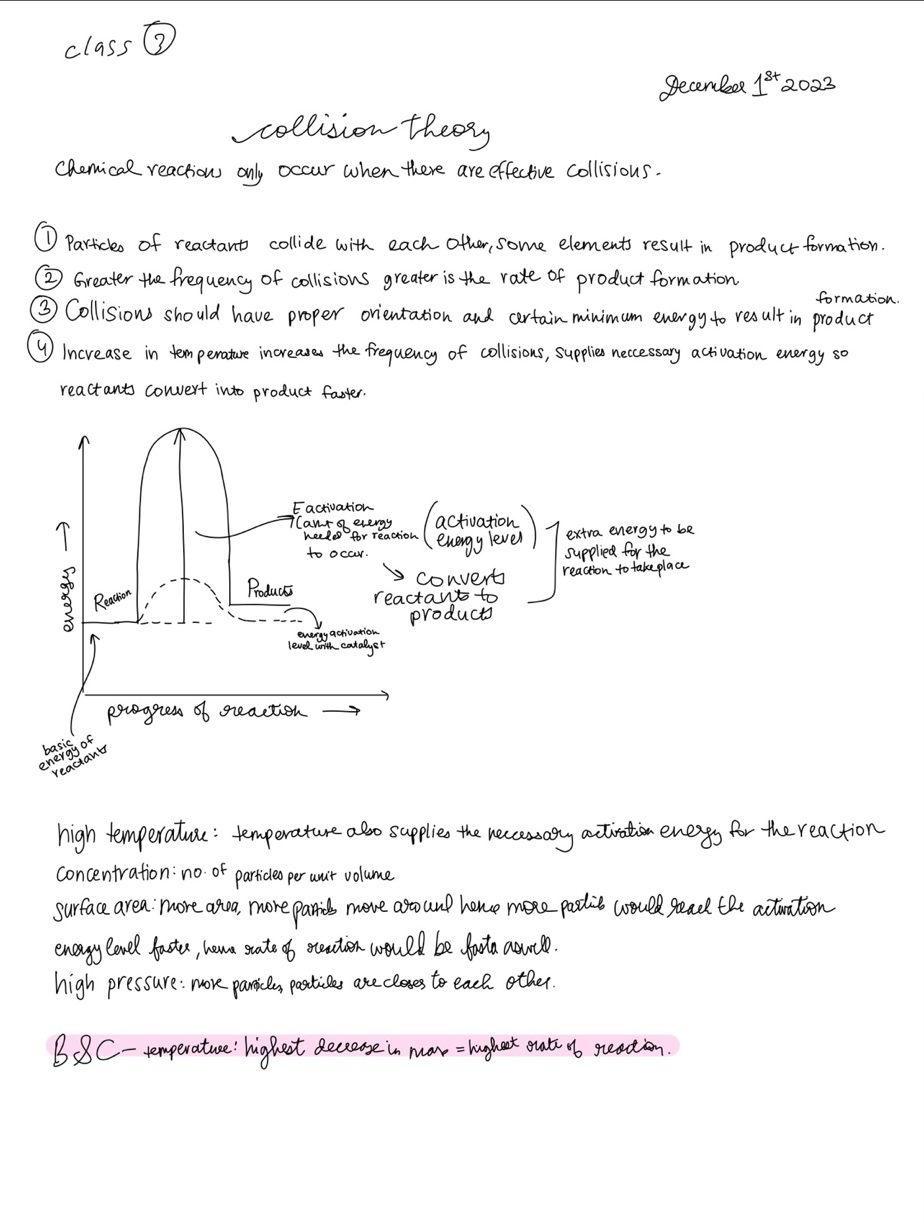 class ③
December 1st 2023
collision theory
Chemical reactions only occur when there are effective collisions.
① Particles of reactants collide with each other, some elements result in product formation.
② Greater the frequency of collisions greater is the rate of product formation.
③ Collisions should have proper orientation and certain minimum energy to result in product
formation.
④ Increase in temperature increases the frequency of collisions, supplies neccessary activation energy so
reactants convert into product faster.
energy →
Reaction
Products
E activation
(amt of energy
needed for reaction
to occur.
(activation
energy level)
converts
reactants to
products
extra energy to be
supplied for the
reaction to take place
energy activation
level with catalyst
progress of reaction →
basic
energy of
reactants
high temperature: temperature also supplies the neccessary activation energy for the reaction
concentration: no. of particles per unit volume
surface area: more area, more particls move around hence more particls would reach the activation
energy level faster, hence rate of reaction would be faster aswell.
high pressure: more particles, particles are closes to each other.
B&C – temperature: highest decrease in mass = highest rate of reaction.